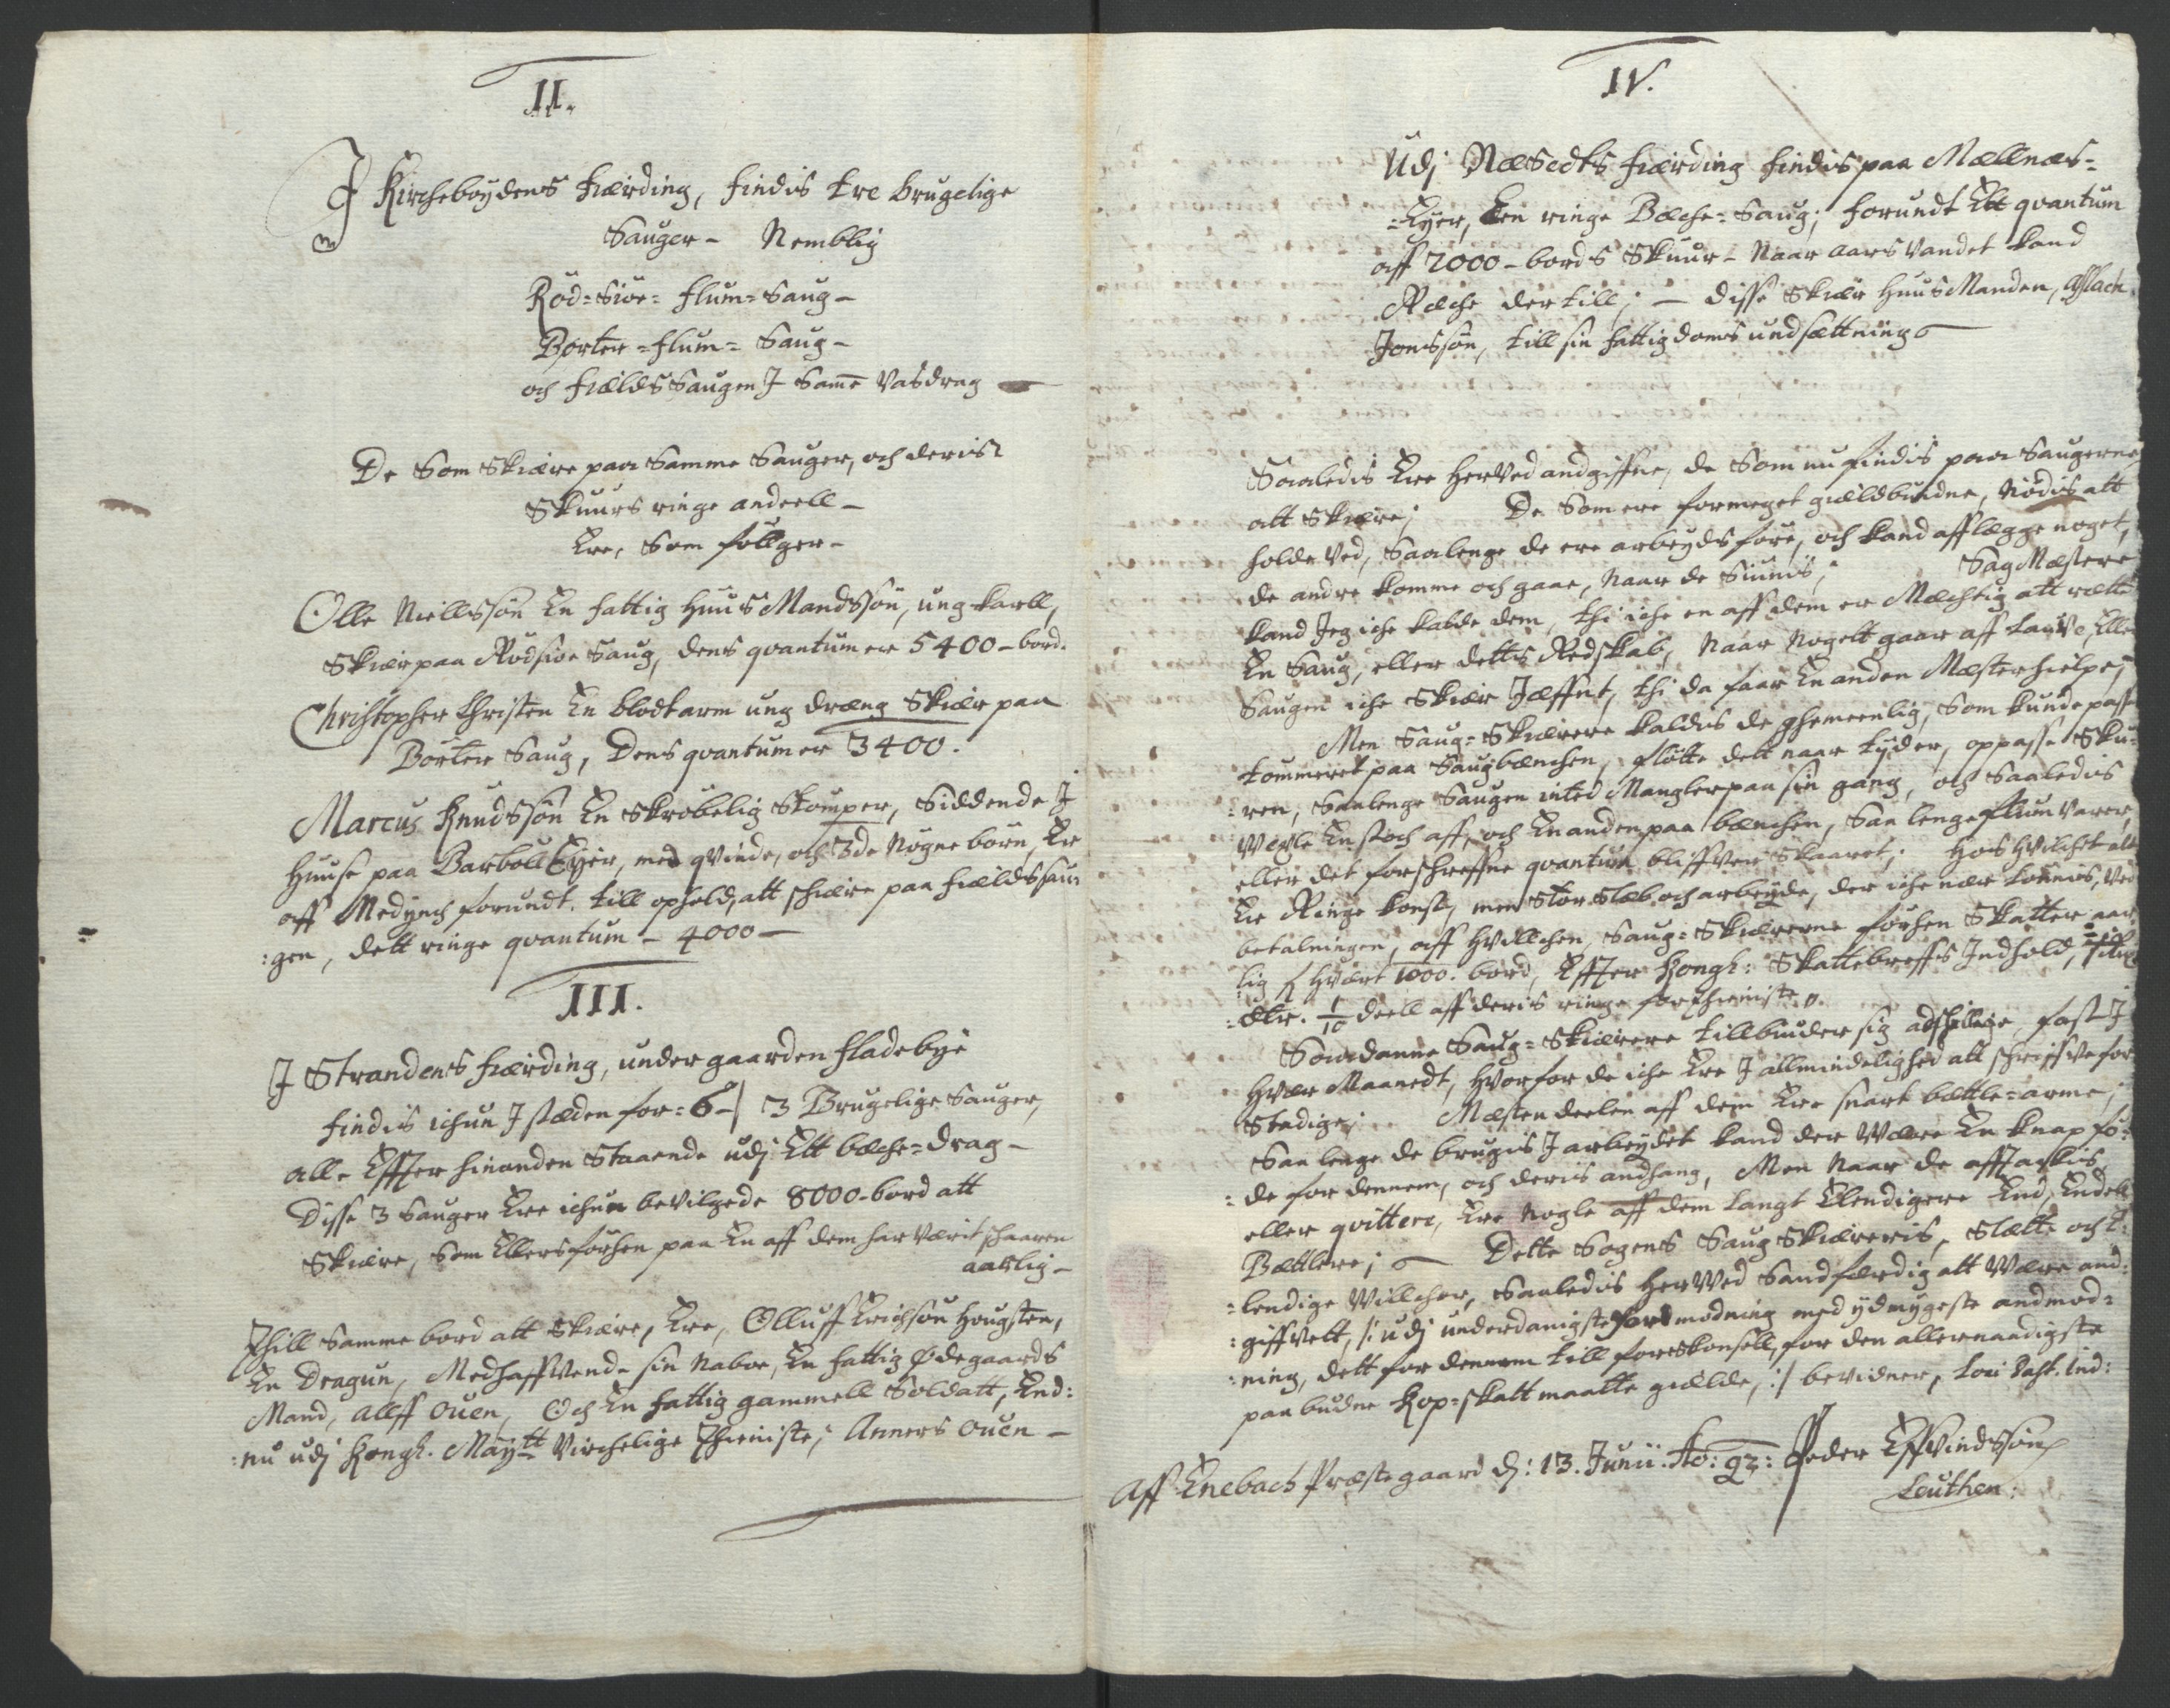 II.
I Kircheboydens fiærding, findis tre brugelige
Sauger - Nemblig
Röd=Siöe= flum= Saug -
Börter =flum= Saug -
och fieldsSaugen I Samme Vasdrag -
De Som Skiære paa Samme Sauger, och deris
Skuurs ringe andeell -
Ere, Somföllger -
Olle Niellssön En fattig HuusMandssön, ung karll,
Skiær paa Rödsiöe Saug, dens qvantum er 5400 - bord.
Christopher Christen En blodtarm ung dræng Skiær paa
Börter Saug, Dens qvantum er 3400.
Marcus Knudssön En Skröbelig Stömper, Siddende I
Huuse paa Barböll Eyer, med qvinde, och 3de Nögne börn, Er
aff Medynch forundt, till ophold, att schiære paa fieldssau
:gen, dett ringe qvantum - 4000 -
III.
I Strandens fiærding, under gaarden fladebye
findis ichun I stæden for = 6 -/ 3 Brugelige Sauger,
alle Effter hinanden Staaende udj Ett bæche=drag -
Disse 3 Sauger Ere ichun bevilgede 8000 - bord att
Skiære, Som Ellers forhen paa En aff dem har værit schaaren
aarlig -
Thill Samme bord att Skiære, Ere, Olluff Erichsön Hougsten,
En Dragun, Medhaffvende sin Naboe, En fattig Ødegaards
Mand, Alff Ouen, Och En fattig gammell Soldatt, End:
:nu udj Kongl. Maytt Virchelige Thieniste; Anners Ouen -
IV.
Udj Næsedts fiærding findis paa Mællnæs=
=Eyer, Een ringe Bæche=Saug; forundt Ett qvantum
aff 2000 - bords Skuur - Naar aarsVandet kand
Ræche der till; - disse Skiær HuusManden, Aslach
Jonssön, till sin fattigdoms undsættning
Saaledis Ere herved andgiffne, de Som nu findis paa Saugerne
att Skiære; De Som ere formeget gieldbundne, Nödis att
holde ved, Saalenge de ere arbeyds före, och kand afflægge noget,
de andre komme och gaae, Naar de Siunis; SagMæstere
kand Jeg iche kalde dem, thi iche en aff dem er Mæchtig att rætte
En Saug, eller dettis Redskab, Naar Nogett gaar aff Lauve, Eller
Saugen iche Skiær Jæffnt, thi da faar En anden Mæster hielpe;
Men Saug=Skiærere kaldis de ghemeenlig, Som kunde passe
tommeret paa Saugbænchen, flötte dett naar tyder, oppasse Sku=
:ren, Saalenge Saugen inted Mangler paa sin gang, och Saaledis
Vexle En stoch aff, och En anden paa bænchen, Saa lenge flum varer,
eller det forschreffne qvantum bliffver Skaaret; Hois hvilchet alt
Er Ringe konst, men Stor Slæb och arbeyde, der iche nær lönnis, ved
betalningen, aff hvilchen, Saug=Skiærerne forhen Skatter aar
lig hvært 1000. bord, Effter Kongl: Skattebreffs Indhold,
:dlr. 1/10 deell aff deris ringe forthieniste.
Saadanne Saug=Skiærere tillbinder sig adschillige, fast I
hvær Maanedt, hvorfor de iche Ere I allmindelighed att schriffve for
Stadige; Mæstendeelen aff dem Ere snart bættle=arme;
Saa lenge de brugis I arbeydet kand der være En knap fö=
:de for dennem, och deris andhang, Men Naar de affTachis
eller qvittere, Ere Nogle aff dem langt Elendigere End, Endell
Bættlere; Dette Sogens SaugSkiæreris, Slætte och E:
=lendige Willchor, Saaledis herved Sandfærdig att være and:
:giffvett, /: udj underdanigste formodning med ydmygeste andmod=
:ning, dett for dennem till foreskonsell, for den allernaadigste
paabudne Kop=skatt maatte gielde, :/ bevidner,
Aff Enebach Præstegaard d: 13. Junii. Ao: 92: Peder Effvindssön
Leuthen: